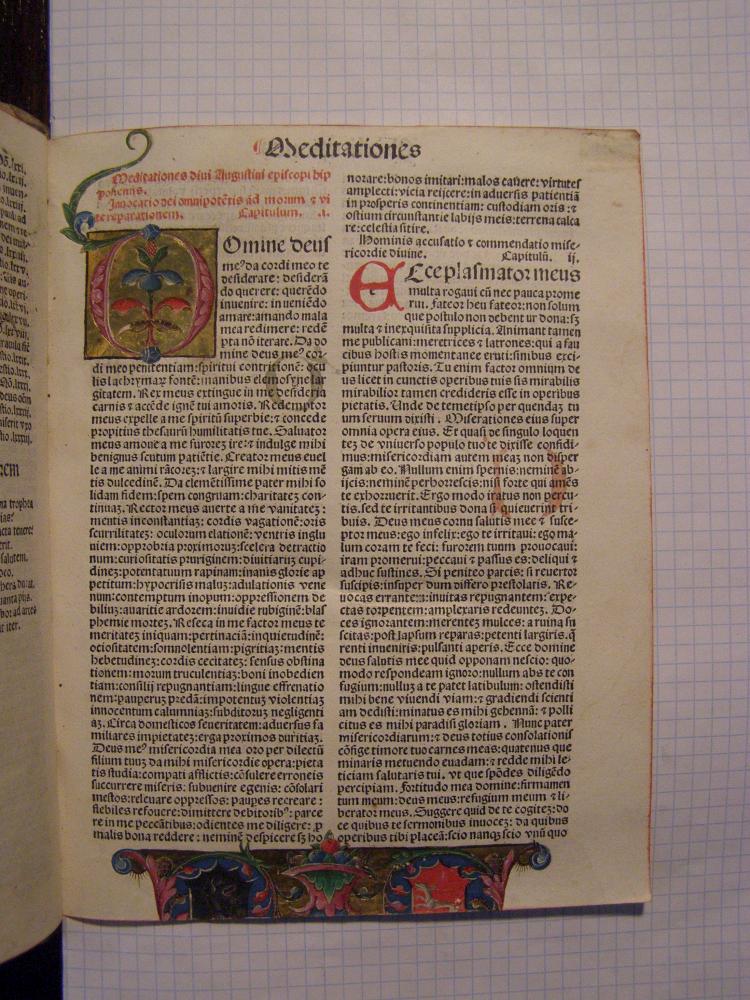 Meditationes
Meditationes diui Augustini episcopi hip
ponensis.
Inuocatio dei omnipotẽtis ad morum ⁊ vi
te reparationem. Capitulum. .i.
Omine deus
me⁹ da cordi meo te
desiderare: desiderã
do querere: querẽdo
inuenire: in ueniẽdo
amare: amando mala
mea redimere: redẽ
pta nõ iterare. Da do
mine deus me⁹ cor⸗
di meo penitentiam: spiritui contritionẽ: ocu
lis lachrymaꝝ fontẽ: manibus elemosyne lar
gitatem. Rex meus extingue in me desideria
carnis ⁊ accẽde ignẽ tui amoris. Redemptor
meus expelle a me spiritũ superbie: ⁊ concede
propitius thesaurũ humilitatis tue. Saluator
meus amoue a me furorẽ ire: ⁊ indulge mihi
benignus scutum patiẽtie. Creator meus euel
le a me animi rãcorẽ: ⁊ largire mihi mitis mẽ
tis dulcedinẽ. Da clemẽtissime pater mihi so
lidam fidem: spem congruam: charitatẽ con⸗
tinuaʒ. Rector meus auerte a me vanitateʒ:
mentis inconstantiaʒ: cordis vagationẽ: oris
scurrilitateʒ: oculorum elationẽ: ventris inglu
uiem: opprobria proximoruʒ: scelera detractio
num: curiositatis pruriginem: diuitiaruʒ cupi⸗
dineʒ: potentatum rapinam: inanis glorie ap
petitum: hypocrisis maluʒ: adulationis vene
num: contemptum inopum: oppressionem de
biliuʒ: auaritie ardorem: inuidie rubiginẽ: blas
phemie morteʒ. Reseca in me factor meus te
meritateʒ iniquam: pertinaciã: inquietudinẽ:
ociositatem: somnolentiam: pigritiaʒ: mentis
hebetudineʒ: cordis cecitateʒ: sensus obstina
tionem: morum truculentiaʒ: boni inobedien
tiam: consilij repugnantiam: lingue effrenatio
nem: pauperuʒ predã: impotentuʒ violentiaʒ
innocentum calumniaʒ: subditoruʒ negligenti
aʒ. Circa domesticos seueritatem: aduersus fa
miliares impietateʒ: erga proximos duritiaʒ.
Deus me⁹ misericordia mea oro per dilectũ
filium tuuʒ da mihi misericordie opera: pieta
tis studia: compati afflictis: cõsulere erroneis
succurrere miseris: subuenire egenis: cõsolari
mestos: releuare oppressos: paupes recreare:
flebiles refouere: dimittere debitorib⁹: parce
re in me peccãtibus: odientes me diligere: ꝓ
malis bona reddere: neminẽ despicere sʒ ho
norare: bonos imitari: malos cauere: virtutes
amplecti: vicia reijcere: in aduersis patientiã
in prosperis continentiam: custodiam oris: ⁊
ostium circunstantie labijs meis: terrena calca
re: celestia sitire.
Hominis accusatio ⁊ commendatio mise⸗
ricordie diuine. Capitulũ. ij.
ECce plasmator meus
multa rogaui cũ nec pauca prome
rui. Fateor heu fateor: non solum
que postulo non debent̃ ur dona: sʒ
multa ⁊ inexquisita supplicia. Animant tamen
me publicani: meretrices ⁊ latrones: qui a fau
cibus hostis momentanee eruti: sinibus exci⸗
piuntur pastoris. Tu enim factor omnium de
us licet in cunctis operibus tuis sis mirabilis
mirabilior tamen crederis esse in operibus
pietatis. Unde de temetipso per quendaʒ tu
um seruum dixisti. Miserationes eius super
omnia opera eius. Et quasi de singulo loquen
teʒ de vniuerso populo tuo te dixisse confidi⸗
mus: misericordiam autem meaʒ non disper
gam ab eo. Nullum enim spernis: neminẽ ab⸗
ijcis: neminẽ perhorrescis: nisi forte qui amẽs
te exhorruerit. Ergo modo iratus non percu⸗
tis. sed te irritantibus dona si quieuerint tri⸗
buis. Deus meus cornu salutis mee ⁊ susce⸗
ptor meus: ego infelix: ego te irritaui: ego ma⸗
lum coram te feci: furorem tuum prouocaui:
iram promerui: peccaui ⁊ passus es: deliqui ⁊
adhuc sustines. Si peniteo parcis: si reuertor
suscipis: insuper dum differo prestolaris. Re⸗
uocas erranteʒ: inuitas repugnantem: expe⸗
ctas torpentem: amplexaris redeunteʒ. Do⸗
ces ignorantem: merenteʒ mulces: a ruina su
scitas: post lapsum reparas: petenti largiris. q̃
renti inueniris: pulsanti aperis. Ecce domine
deus salutis mee quid opponam nescio: quo⸗
modo respondeam ignoro: nullum abs te con
fugium: nulluʒ a te patet latibulum: ostendisti
mihi bene viuendi viam: ⁊ gradiendi scienti
am dedisti: minatus es mihi gehennã: ⁊ polli
citus es mihi paradisi gloriam. Nunc pater
misericordiarum: ⁊ deus totius consolationis
cõfige timore tuo carnes meas: quatenus que
minaris metuendo euadam: ⁊ redde mihi le⸗
ticiam salutaris tui. vt que spõdes diligẽdo
percipiam. Fortitudo mea domine: firmamen
tum meum: deus meus: refugium meum ⁊ li⸗
berator meus. Suggere quid de te cogiteʒ: do
ce quibus te sermonibus inuoceʒ: da quibus
operibus tibi placeã: scio nanqʒ scio vnũ quo